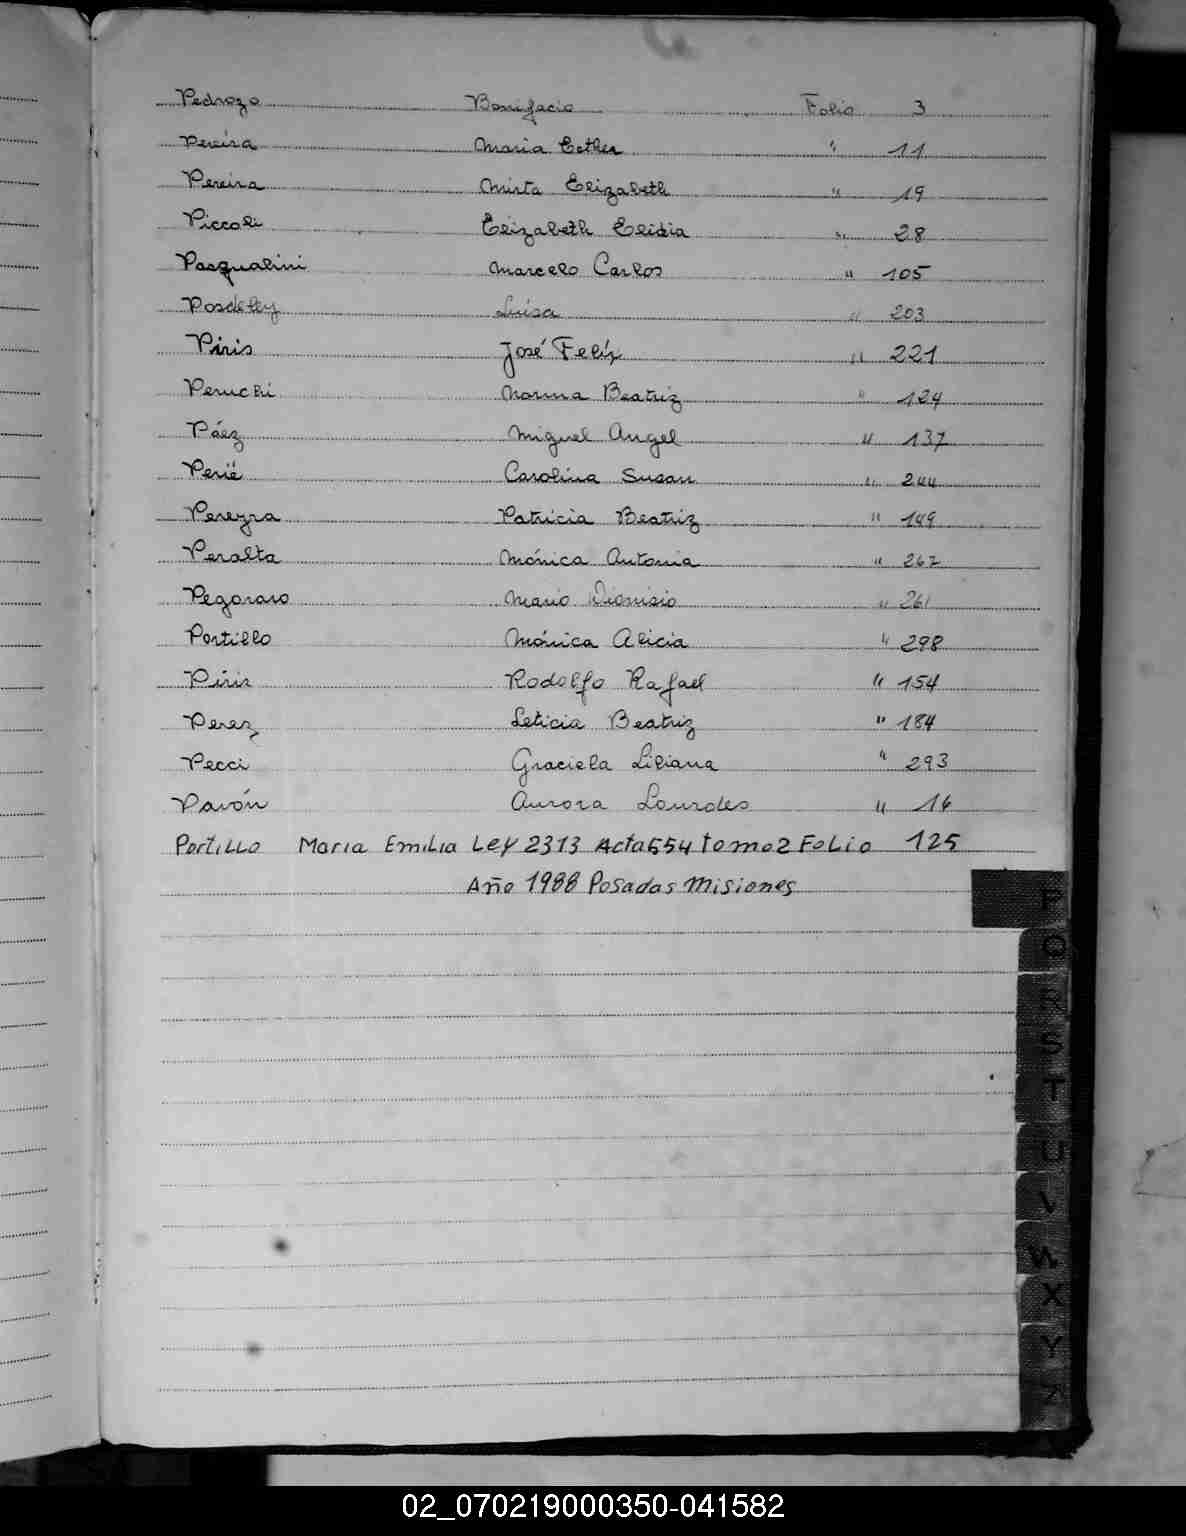 Pedrozo Bonifacio Folio 3
Pereira Maria Esther " 11
Pereira Mirta Elizabeth " 19
Piccoli Elizabeth Elidia " 28
Pasqualini Marcelo Carlos " 105
Luisa " 203
Piris José Felix " 221
Peruchi Norma Beatriz " 124
Páez Miguel Angel " 137
Perié Carolina Susan " 244
Pereyra Patricia Beatriz " 149
Peralta Mónica Antonia " 267
Pegoraro Mario Dionisio " 261
Portillo Mónica Alicia " 298
Piris Rodolfo Rafael " 154
Perez Leticia Beatriz " 184
Pecci Graciela Liliana " 293
Pavón Aurora Lourdes " 16
Portillo Maria Emilia Ley 2313 Acta 554 tomo 2 Folio 125
Año 1988 Posadas Misiones
P
O
R
S
T
U
V
W
X
Y
Z
02_070219000350-041582